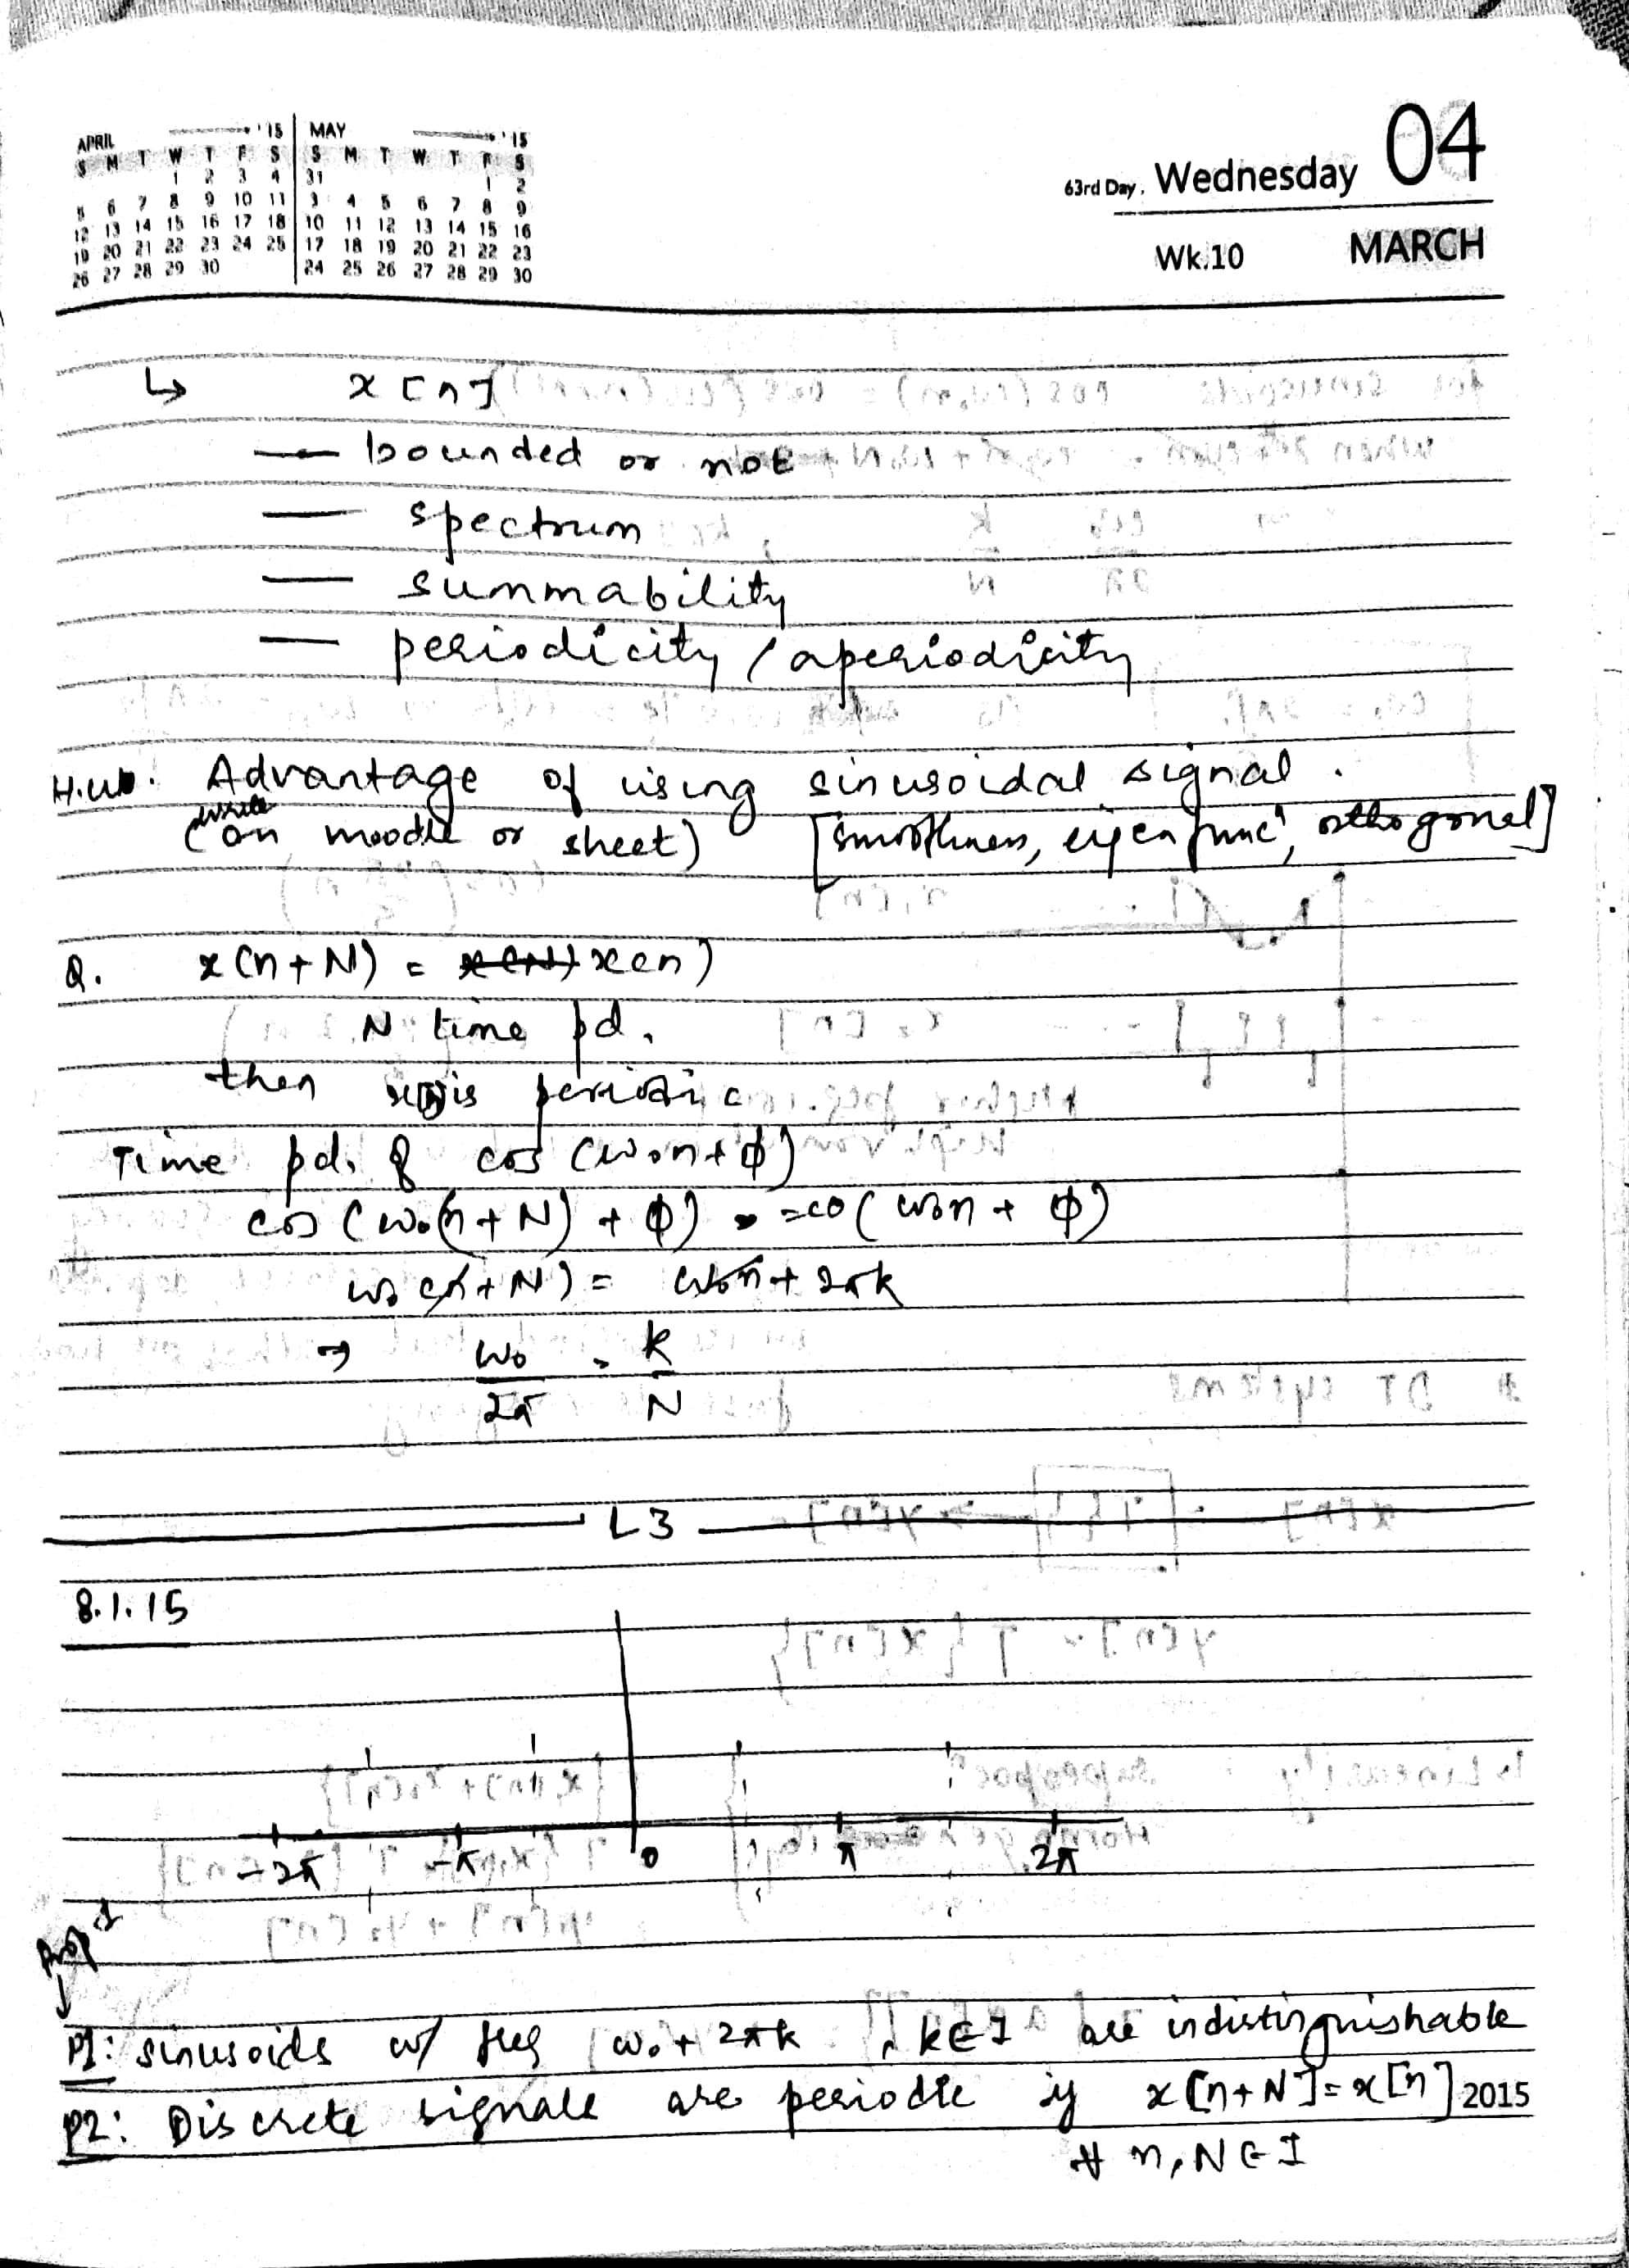 APRIL '15 MAY '15
S M T W T F S S M T W T F S
1 2 3 4 31 1 2
5 6 7 8 9 10 11 3 4 5 6 7 8 9
12 13 14 15 16 17 18 10 11 12 13 14 15 16
19 20 21 22 23 24 25 17 18 19 20 21 22 23
26 27 28 29 30 24 25 26 27 28 29 30
63rd Day, Wednesday 04
Wk.10 MARCH
↳ x[n]
— bounded or not
— spectrum
— summability
— periodicity / aperiodicity
H.w. Advantage of using sinusoidal signal.
(write on moodle or sheet) [smoothness, eigen funcⁿ, orthogonal]
Q. x(n+N) = x(n)
N time pd.
then x[n] is periodic
Time pd. of cos(ω₀n+ϕ)
cos(ω₀(n+N)+ϕ) = co(ω₀n+ϕ)
ω₀(n+N) = ω₀n+2πk
→ ω₀/2π = k/N
L3
8.1.15
-2π -π 0 π 2π
Prop
P1: sinusoids w/ freq ω₀+2πk, k∈I are indistinguishable
P2: Discrete signals are periodic if x[n+N]=x[n] 2015
∀ n, N∈I